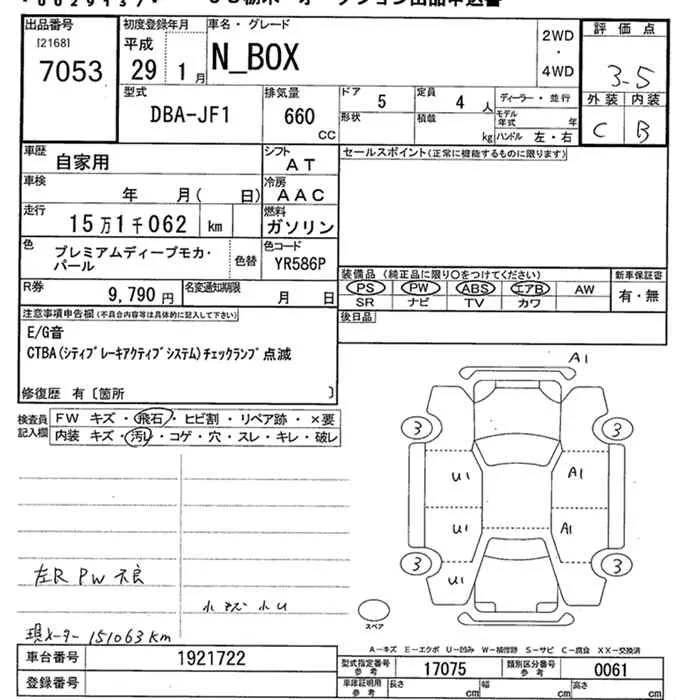 出品番号 初度登録年月 車名・グレード 2WD・4WD 評価点
[2168]
7053 平成 29 1月 N_BOX 3-5
外装 内装
C B
型式 排気量 ドア 5 定員 4人 ディーラー・並行
DBA-JF1 660 CC 形状 積載 kg モデル年式 年
ハンドル 左・右
車歴 自家用 シフト AT セールスポイント(正常に機能するものに限ります)
車検 年 月( 日) 冷房 AAC
走行 15万1千062 km 燃料 ガソリン
色 プレミアムディープモカ・パール 色替 色コード YR586P
装備品(純正品に限り〇をつけてください) 新車保証書
PS PW ABS エアB AW 有・無
SR ナビ TV カワ
R券 9,790円 名変通知期限 月 日
後日品
注意事項申告欄(不具合内容等は具体的に記入して下さい)
E/G音
CTBA(シティブレーキアクティブシステム)チェックランプ点滅
修復歴 有〔箇所 〕
検査員記入欄
FW キズ・飛石・ヒビ割・リペア跡・×要
内装 キズ・汚レ・コゲ・穴・スレ・キレ・破レ
A1
3 3
U1 A1
U1 A1
3 3
U1
左R PW 不良
スペア
現メーター 151063km
A-キズ E-エクボ U-凹み W-補修跡 S-サビ C-腐食 XX-交換済
車台番号 1921722 型式指定番号 参考 17075 類別区分番号 参考 0061
登録番号 車庫証明用 参考 長さ cm 幅 cm 高さ cm